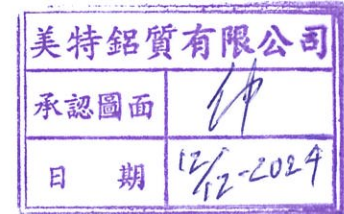 美特鋁質有限公司
承認圖面
日 期 12/12-2024